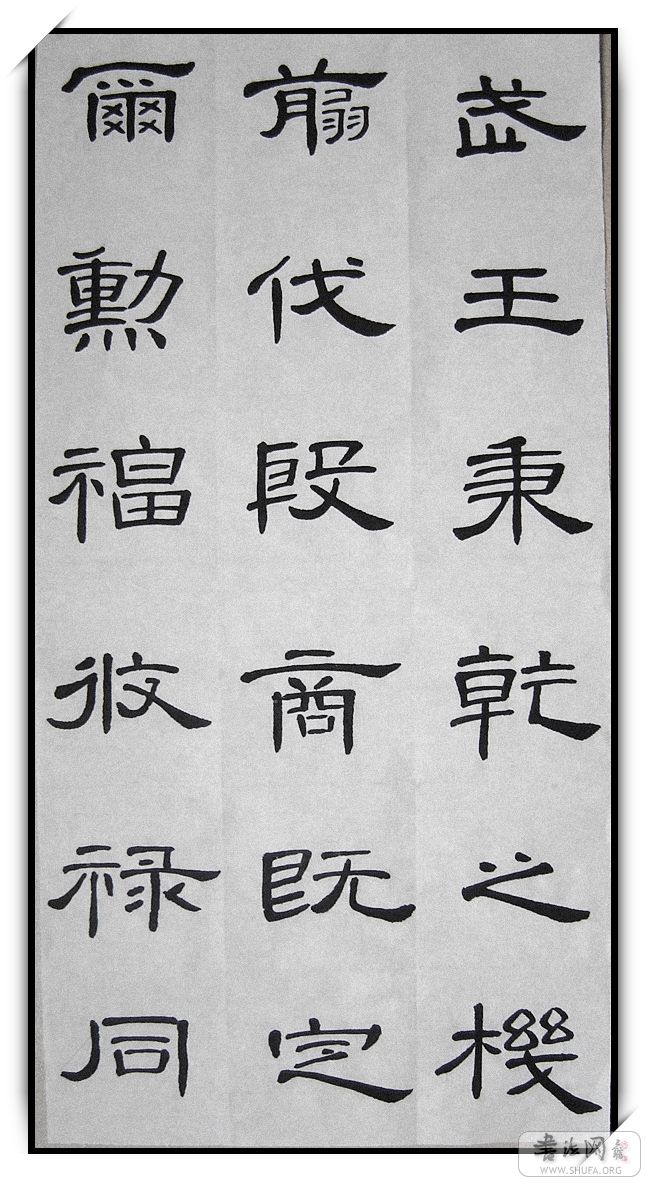 武王秉乾之機
翦伐殷商既定
爾勳福攸禄同
書法网
WWW.SHUFA.ORG